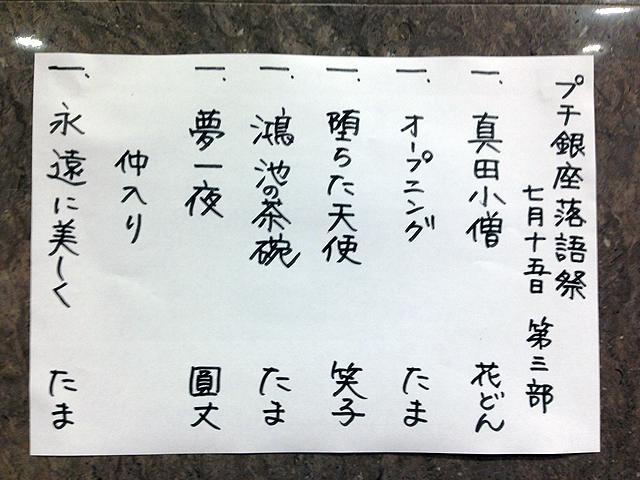 プチ銀座落語祭
七月十五日 第三部
一、真田小僧 花どん
一、オープニング たま
一、堕らた天使 笑子
一、鴻池の茶碗 たま
一、夢一夜 圓丈
仲入り
一、永遠に美しく たま